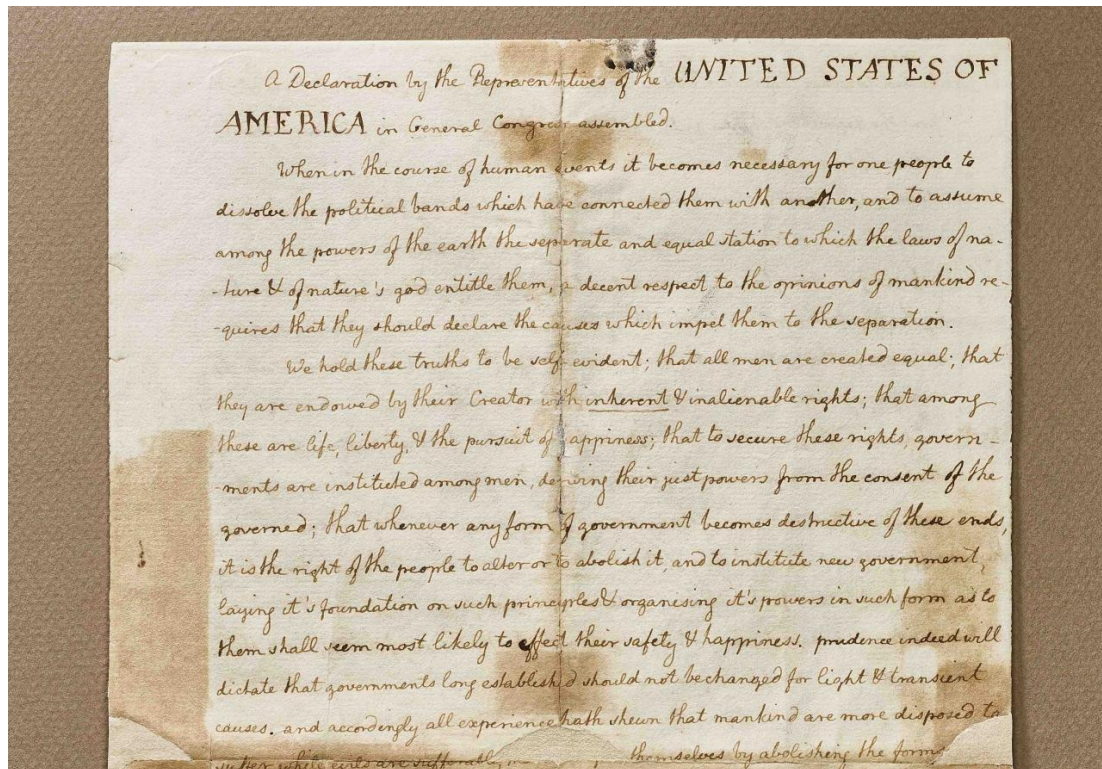 A Declaration by the Representatives of the UNITED STATES OF
AMERICA in General Congress assembled.
When in the course of human events it becomes necessary for one people to
dissolve the political bands which have connected them with another, and to assume
among the powers of the earth the separate and equal station to which the laws of na-
-ture & of nature's god entitle them, a decent respect to the opinions of mankind re-
-quires that they should declare the causes which impel them to the separation.
We hold these truths to be self-evident; that all men are created equal; that
they are endowed by their Creator with inherent & inalienable rights; that among
these are life, liberty, & the pursuit of happiness; that to secure these rights, govern-
-ments are instituted among men, deriving their just powers from the consent of the
governed; that whenever any form of government becomes destructive of these ends,
it is the right of the people to alter or to abolish it, and to institute new government,
laying it's foundation on such principles & organising it's powers in such form as to
them shall seem most likely to effect their safety & happiness. prudence indeed will
dictate that governments long established should not be changed for light & transient
causes. and accordingly all experience hath shewn that mankind are more disposed to
suffer while evils are sufferable, themselves by abolishing the forms